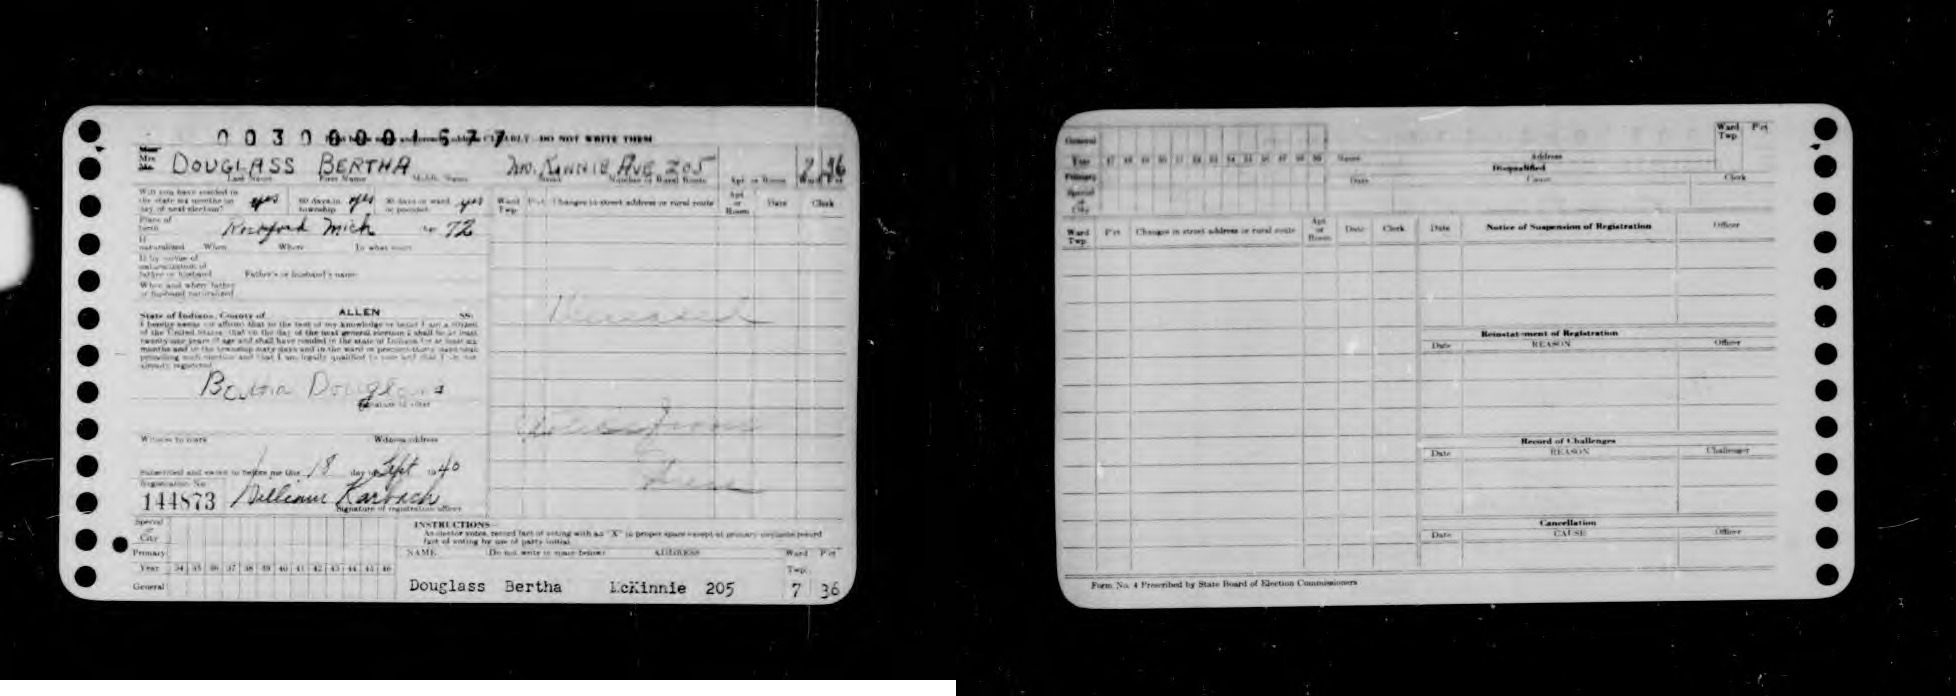 003000001677
DO NOT WRITE THEM
Mrs DOUGLASS BERTHA Mc.KINNIE AVE 205 36
Last Name First Name Middle Name Street Number or Rural Route Apt or Room Ward Pct
Will you have resided in the state six months on day of next election? yes 60 days in township yes 30 days in ward or precinct yes
Ward Twp. Pct Changes in street address or rural route Apt or Room Date Clerk
Place of birth Rockford Mich 72
If naturalized When Where In what court
If by virtue of naturalization of father or husband Father's or husband's name
When and where father or husband naturalized
State of Indiana, County of ALLEN SS:
I hereby swear (or affirm) that to the best of my knowledge or belief I am a citizen
of the United States, that on the day of the next general election I shall be at least
twenty-one years of age and shall have resided in the state of Indiana for at least six
months and in the township sixty days and in the ward or precinct thirty days next
preceding such election and that I am legally qualified to vote and that I am not
already registered.
Bertha Douglass
Signature of voter
Witness to mark Witness address
Subscribed and sworn to before me this 18 day of Sept 1940
Registration No.
144873 William Karbach
Signature of registration officer
Special
City
Primary
Year 34 35 36 37 38 39 40 41 42 43 44 45 46
General
INSTRUCTIONS
As elector votes, record fact of voting with an "X" in proper space except at primary elections record
fact of voting by use of party initial.
NAME (Do not write in space below) ADDRESS Ward Twp. Pct
Douglass Bertha McKinnie 205 7 36
General
Year 47 48 49 50 51 52 53 54 55 56 57 58 59
Primary
Special or City
Name Address Ward Twp. Pct
Disqualified
Date Cause Clerk
Ward Twp. Pct Changes in street address or rural route Apt or Room Date Clerk
Date Notice of Suspension of Registration Officer
Reinstatement of Registration
Date REASON Officer
Record of Challenges
Date REASON Challenger
Cancellation
Date CAUSE Officer
Form No. 4 Prescribed by State Board of Election Commissioners